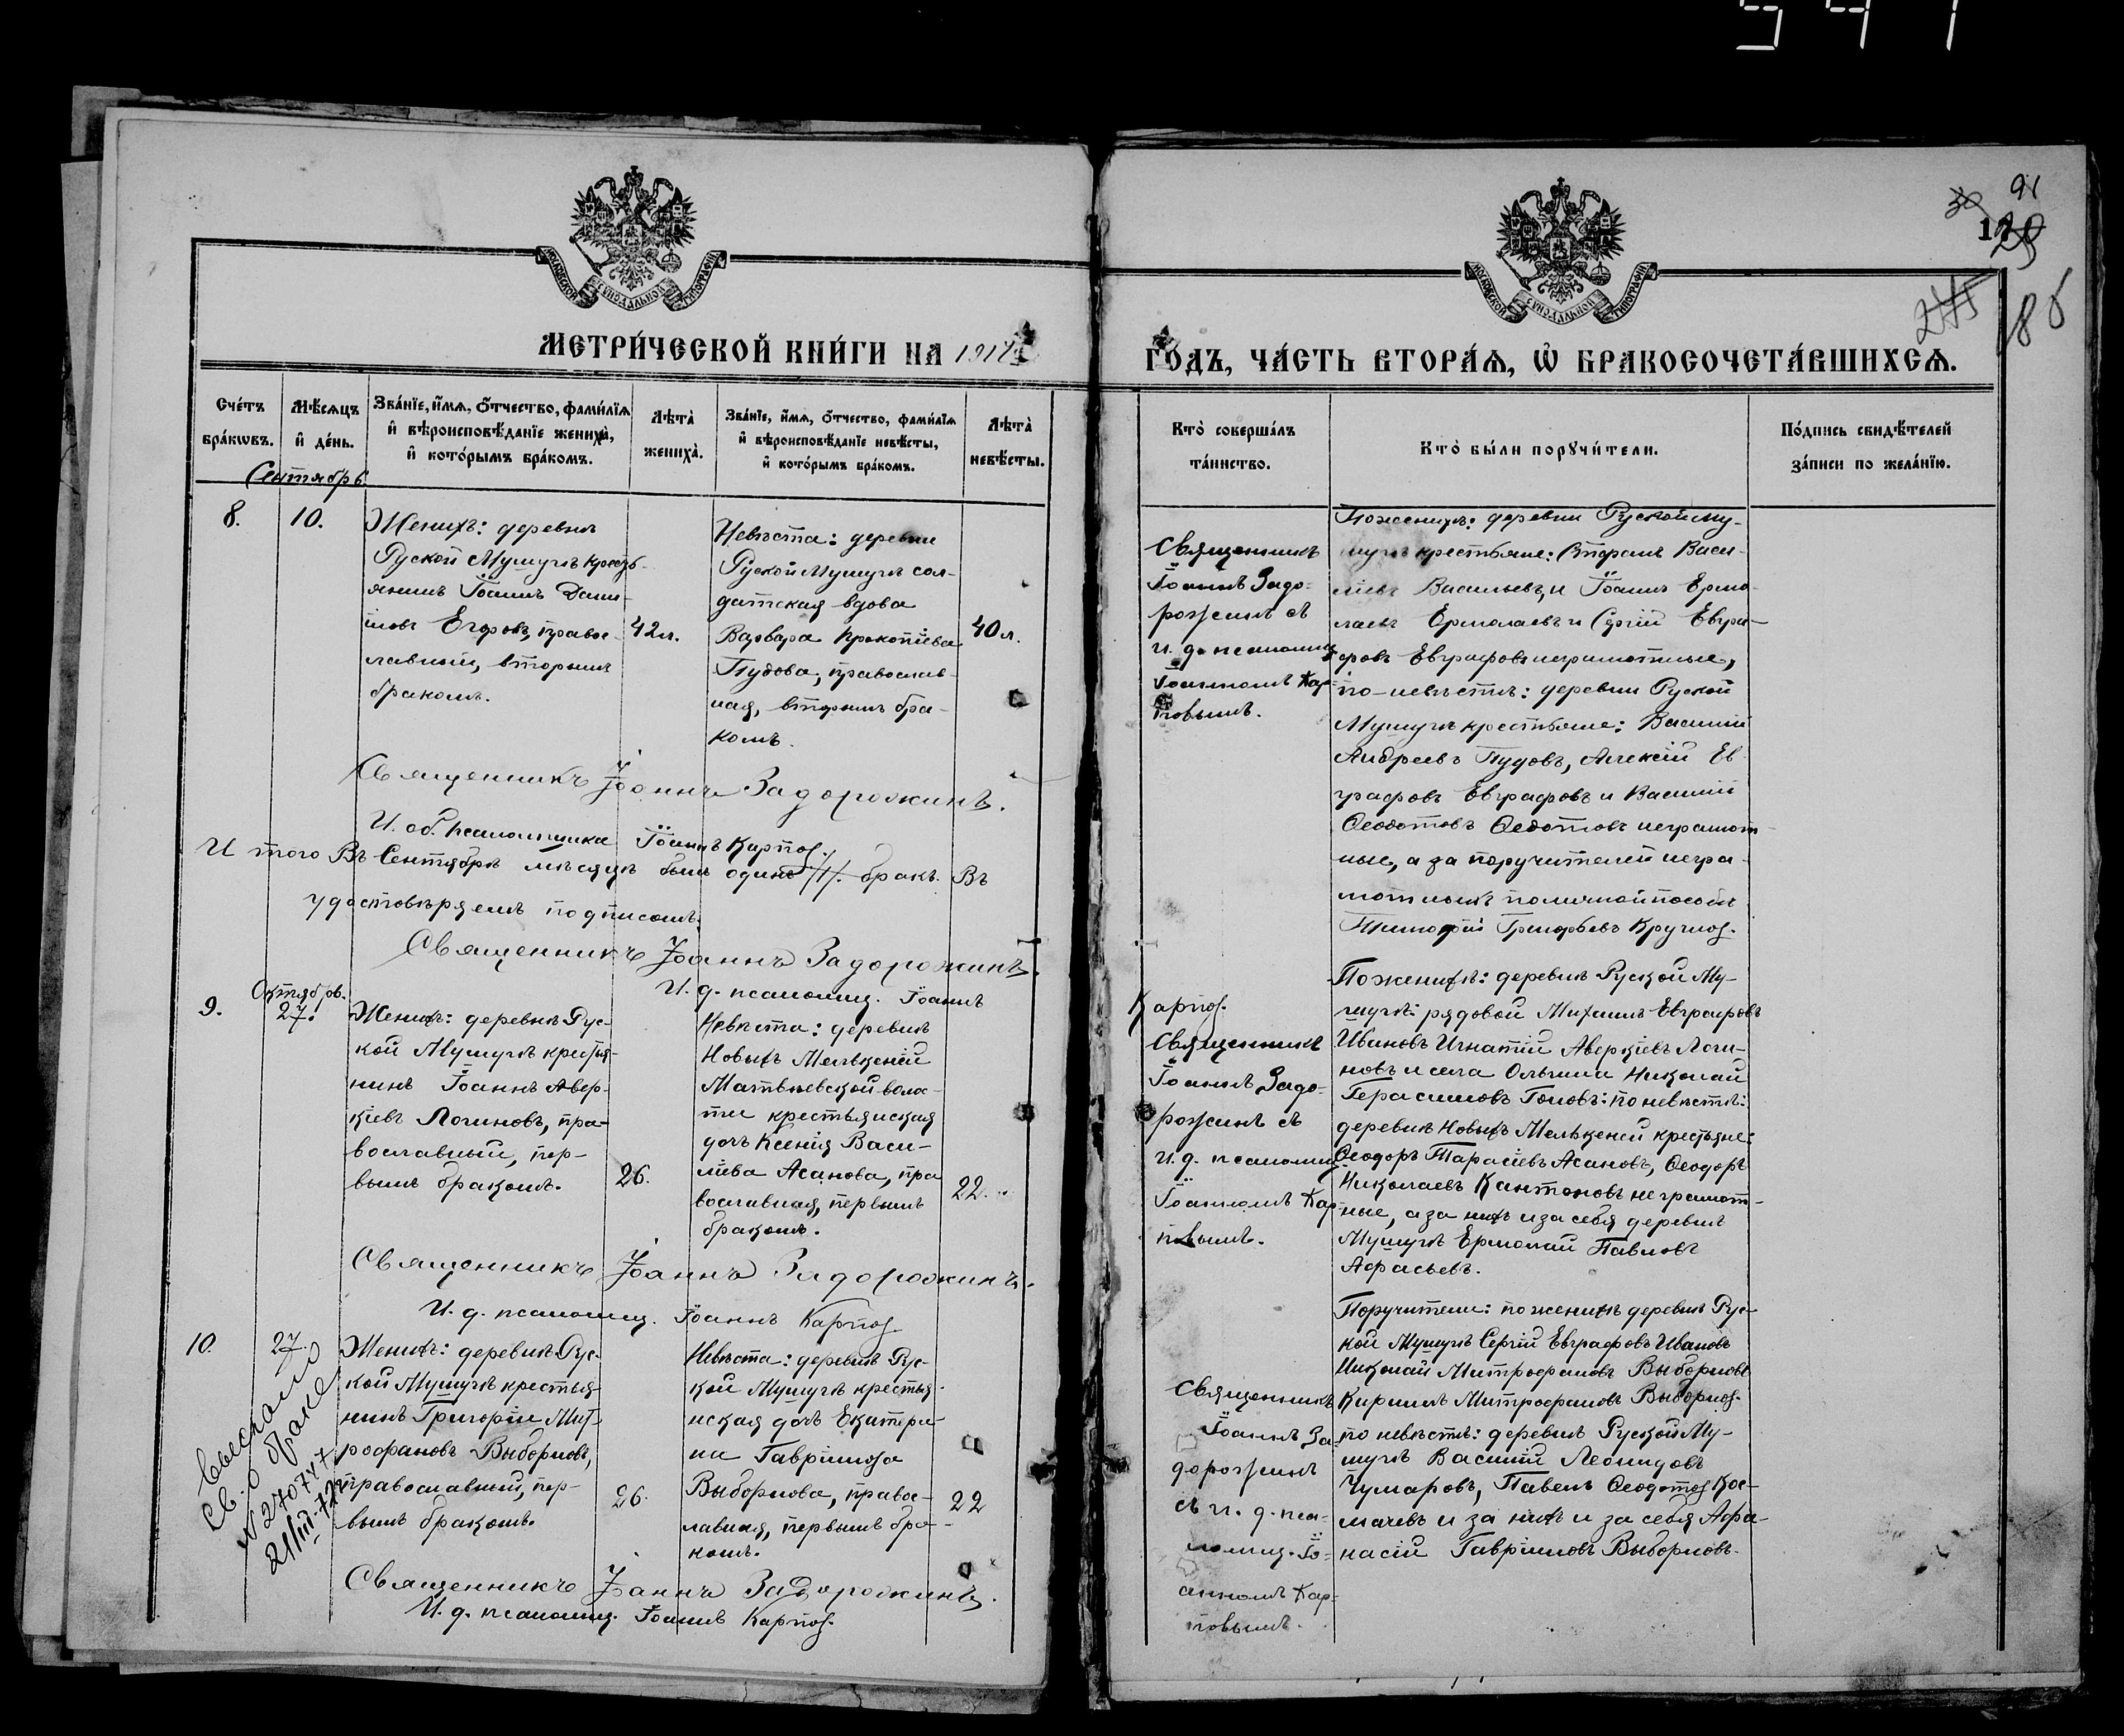 91
30
120
86
МОСКОВСКОЙ СѴНОДАЛЬНОЙ ТИПОГРАФІИ
МОСКОВСКОЙ СѴНОДАЛЬНОЙ ТИПОГРАФІИ
МЕТРИ́ЧЕСКОЙ КНИ́ГИ НА 1917
ГО́ДЪ, ЧА́СТЬ ВТОРА́Ѧ, Ѽ БРАКОСОЧЕТА́ВШИХСѦ.
Сче́тъ бра́кѡвъ.
Мѣ́сѧцъ и де́нь.
Зва́нїе, и́мѧ, ѻ́тчество, фами́лїѧ
и вѣроисповѣ́данїе жениха̀,
и кото́рымъ бра́комъ.
Лѣта̀ жениха̀.
Зва́нїе, и́мѧ, ѻ́тчество, фами́лїѧ
и вѣроисповѣ́данїе невѣ́сты,
и кото́рымъ бра́комъ.
Лѣта̀ невѣ́сты.
Кто̀ соверша́лъ та́инство.
Кто̀ бы́ли порꙋчи́тели.
По́дпись свидѣ́телей
за́писи по жела́нїю.
Сентябрь.
8.
10.
Женихъ: деревни
Руской Мушугѣ кресть-
янинъ Іоаннъ Дани-
иловъ Егоровъ, правос-
лавный, вторымъ
бракомъ.
42 л.
Невѣста: деревни
Руской Мушугѣ сол-
датская вдова
Варвара Прокопіева
Пудова, православ-
ная, вторымъ бра-
комъ.
40 л.
Священникъ
Іоаннъ Задо-
рожинъ съ
и. д. псаломщ.
Іоанномъ Кар-
повымъ.
По женихѣ: деревни Руской Му-
шугѣ крестьяне:
Васильевъ, и Іоаннъ Ермо-
лаевъ Ермолаевъ и Сергій Евгра-
фовъ Евграфовъ неграмотные,
по невѣстѣ: деревни Руской
Мушугѣ крестьяне: Василій
Андреевъ Пудовъ, Алексій Ев-
графовъ Евграфовъ и Василій
Ѳеодотовъ Ѳедотовъ неграмот-
ные, а за поручителей негра-
мотныхъ по личной просьбѣ
Тимоѳей Григорьевъ Кругло.
Священникъ Іоаннъ Задорожинъ.
И. об. псаломщика Іоаннъ Карпов.
И того Въ Сентябрѣ мѣсяцѣ былъ одинъ /1/ бракъ. Въ
удостовѣряемъ подписомъ.
Священникъ Іоаннъ Задорожинъ.
И. д. псаломщ. Іоаннъ
Карпов.
Октябрь.
9.
27.
Женихъ: деревни Рус-
кой Мушугѣ крестья-
нинъ Іоаннъ Авер-
кіевъ Логиновъ, пра-
вославный, пер-
вымъ бракомъ.
26.
Невѣста: деревни
Новыхъ Мелькеней
Матвѣевской волос-
ти крестьянская
дочь Ксенія Васи-
ліева Асанова, пра
вославная, первымъ
бракомъ.
22.
Священникъ
Іоаннъ Задо-
рожинъ съ
и. д. псаломщ.
Іоанномъ Кар-
повымъ.
По женихѣ: деревни Руской Му-
шугѣ: рядовой Михаилъ Евграфовъ
Ивановъ Игнатій Аверкіевъ Логи-
новъ и села Ольгина Николай
Герасимовъ Поповъ: по невѣстѣ:
деревни Новыхъ Мелькеней крестьяне:
Ѳеодоръ Тарасіевъ Асановъ, Ѳеодоръ
Николаевъ Кантоновъ не грамот-
ные, а за нихъ и за себя деревни
Мушугѣ Ермолай Павловъ
Аѳасьевъ.
Священникъ Іоаннъ Задорожинъ.
И. д. псаломщ. Іоаннъ Карпов
10.
27.
Женихъ: деревни Рус-
кой Мушугѣ крестья-
нинъ Григорій Мит-
рофановъ Выборновъ,
православный, пер-
вымъ бракомъ.
26.
Невѣста: деревни Рус-
кой Мушугѣ крестья-
нская дочь Екатери-
на Гавріилова
Выборнова, правос-
лавная, первымъ бра-
комъ.
22
Священникъ
Іоаннъ За-
дорожинъ
съ и. д. пса-
ломщ. Іо-
анномъ Кар-
повымъ.
Поручители: по женихѣ деревни Рус-
кой Мушугѣ Сергій Евграфовъ Ивановъ
Николай Митрофановъ Выборновъ
Кириллъ Митрофановъ Выборнов.
по невѣстѣ: деревни Руской Му-
шугѣ Василій Леонидовъ
Чумаровъ, Павелъ Ѳеодотов Кос-
мачевъ и за нихъ и за себя Аѳа-
насій Гавріиловъ Выборновъ.
Выслано
св. о браке
№ 270747
21/III-72г
Священникъ Іоаннъ Задорожинъ.
И. д. псаломщ. Іоаннъ Карпов.